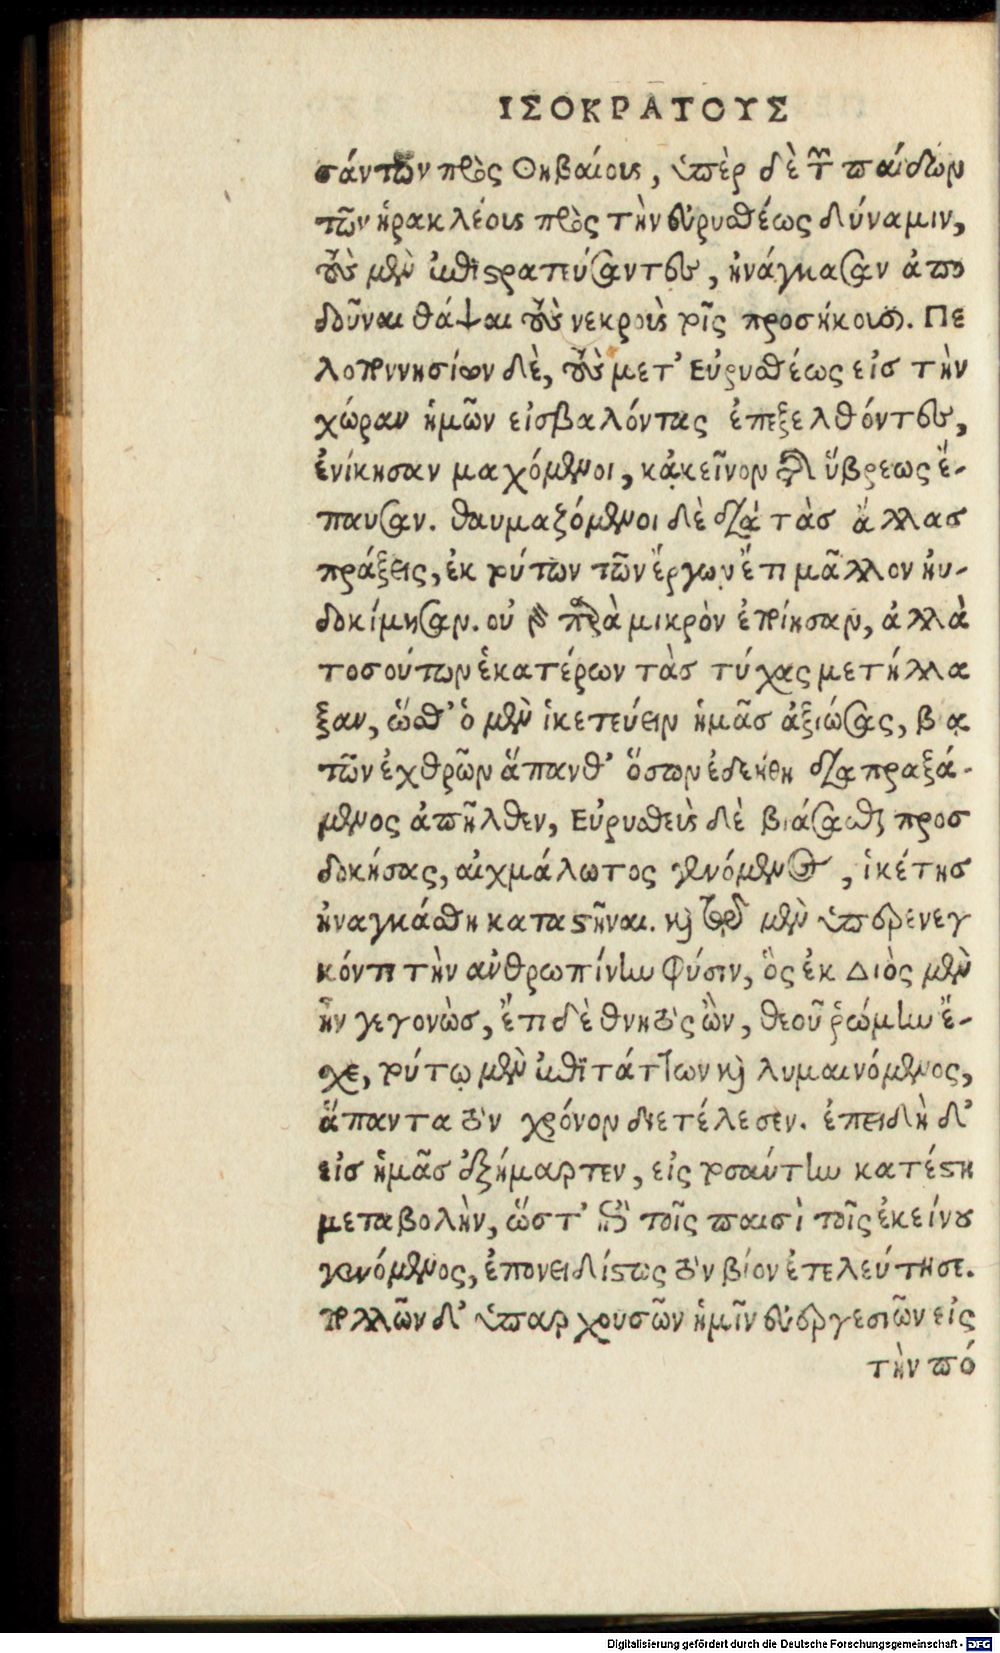 ΙΣΟΚΡΑΤΟΥΣ
σάντων πρὸς Θηβαίους, ὑπὲρ δὲ τῶν παίδων
τῶν ἡρακλέους πρὸς τὴν εὐρυσθέως δύναμιν,
τοὺς μὲν ἐπιστρατεύσαντες, ἠνάγκασαν ἀπο
δοῦναι θάψαι τοὺς νεκροὺς τοῖς προσήκουσι. Πε
λοποννησίων δὲ, τοὺς μετ' Εὐρυσθέως εἰσ τὴν
χώραν ἡμῶν εἰσβαλόντας ἐπεξελθόντες,
ἐνίκησαν μαχόμενοι, κἀκεῖνον τῆς ὕβρεως ἔ-
παυσαν. θαυμαζόμενοι δὲ διὰ τὰσ ἄλλασ
πράξεις, ἐκ τούτων τῶν ἔργων ἔτι μᾶλλον ηυ-
δοκίμησαν. οὐ γὰρ παρὰ μικρὸν ἐποίησαν, ἀλλὰ
τοσούτον ἑκατέρων τὰσ τύχας μετήλλα
ξαν, ὥσθ' ὁ μὲν ἱκετεύειν ἡμᾶσ ἀξιώσας, βίᾳ
τῶν ἐχθρῶν ἅπανθ' ὅσων ἐδεήθη διαπραξά-
μενος ἀπῆλθεν, Εὐρυσθεὺς δὲ βιάσασθαι προσ
δοκήσας, αἰχμάλωτος γενόμενος, ἱκέτησ
ἠναγκάσθη καταστῆναι. καὶ τῷ μὲν ὑπερενεγ
κόντι τὴν ἀνθρωπίνην φύσιν, ὃς ἐκ Διὸς μὲν
ἦν γεγονὼσ, ἔτι δὲ θνητὸς ὢν, θεοῦ ῥώμην ἔ-
χε, τούτῳ μὲν ἐπιτάττων καὶ λυμαινόμενος,
ἅπαντα τὸν χρόνον διετέλεσεν. ἐπειδὴ δ'
εἰσ ἡμᾶσ ἐξήμαρτεν, εἰς τοσαύτην κατέστη
μεταβολὴν, ὥστ' ἐπὶ τοῖς παισὶ τοῖς ἐκείνου
γενόμενος, ἐπονειδίστως τὸν βίον ἐτελεύτησε.
πολλῶν δ' ὑπαρχουσῶν ἡμῖν εὐεργεσιῶν εἰς
τὴν πό
Digitalisierung gefördert durch die Deutsche Forschungsgemeinschaft - DFG